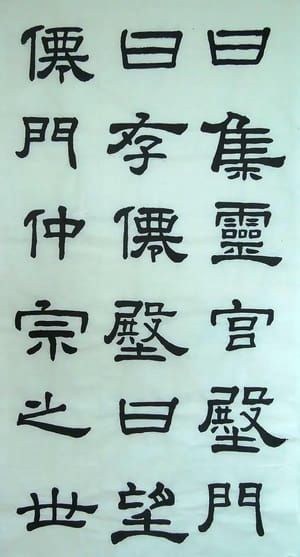 曰集靈宮壂門
曰存僊壂曰望
僊門仲宗之世